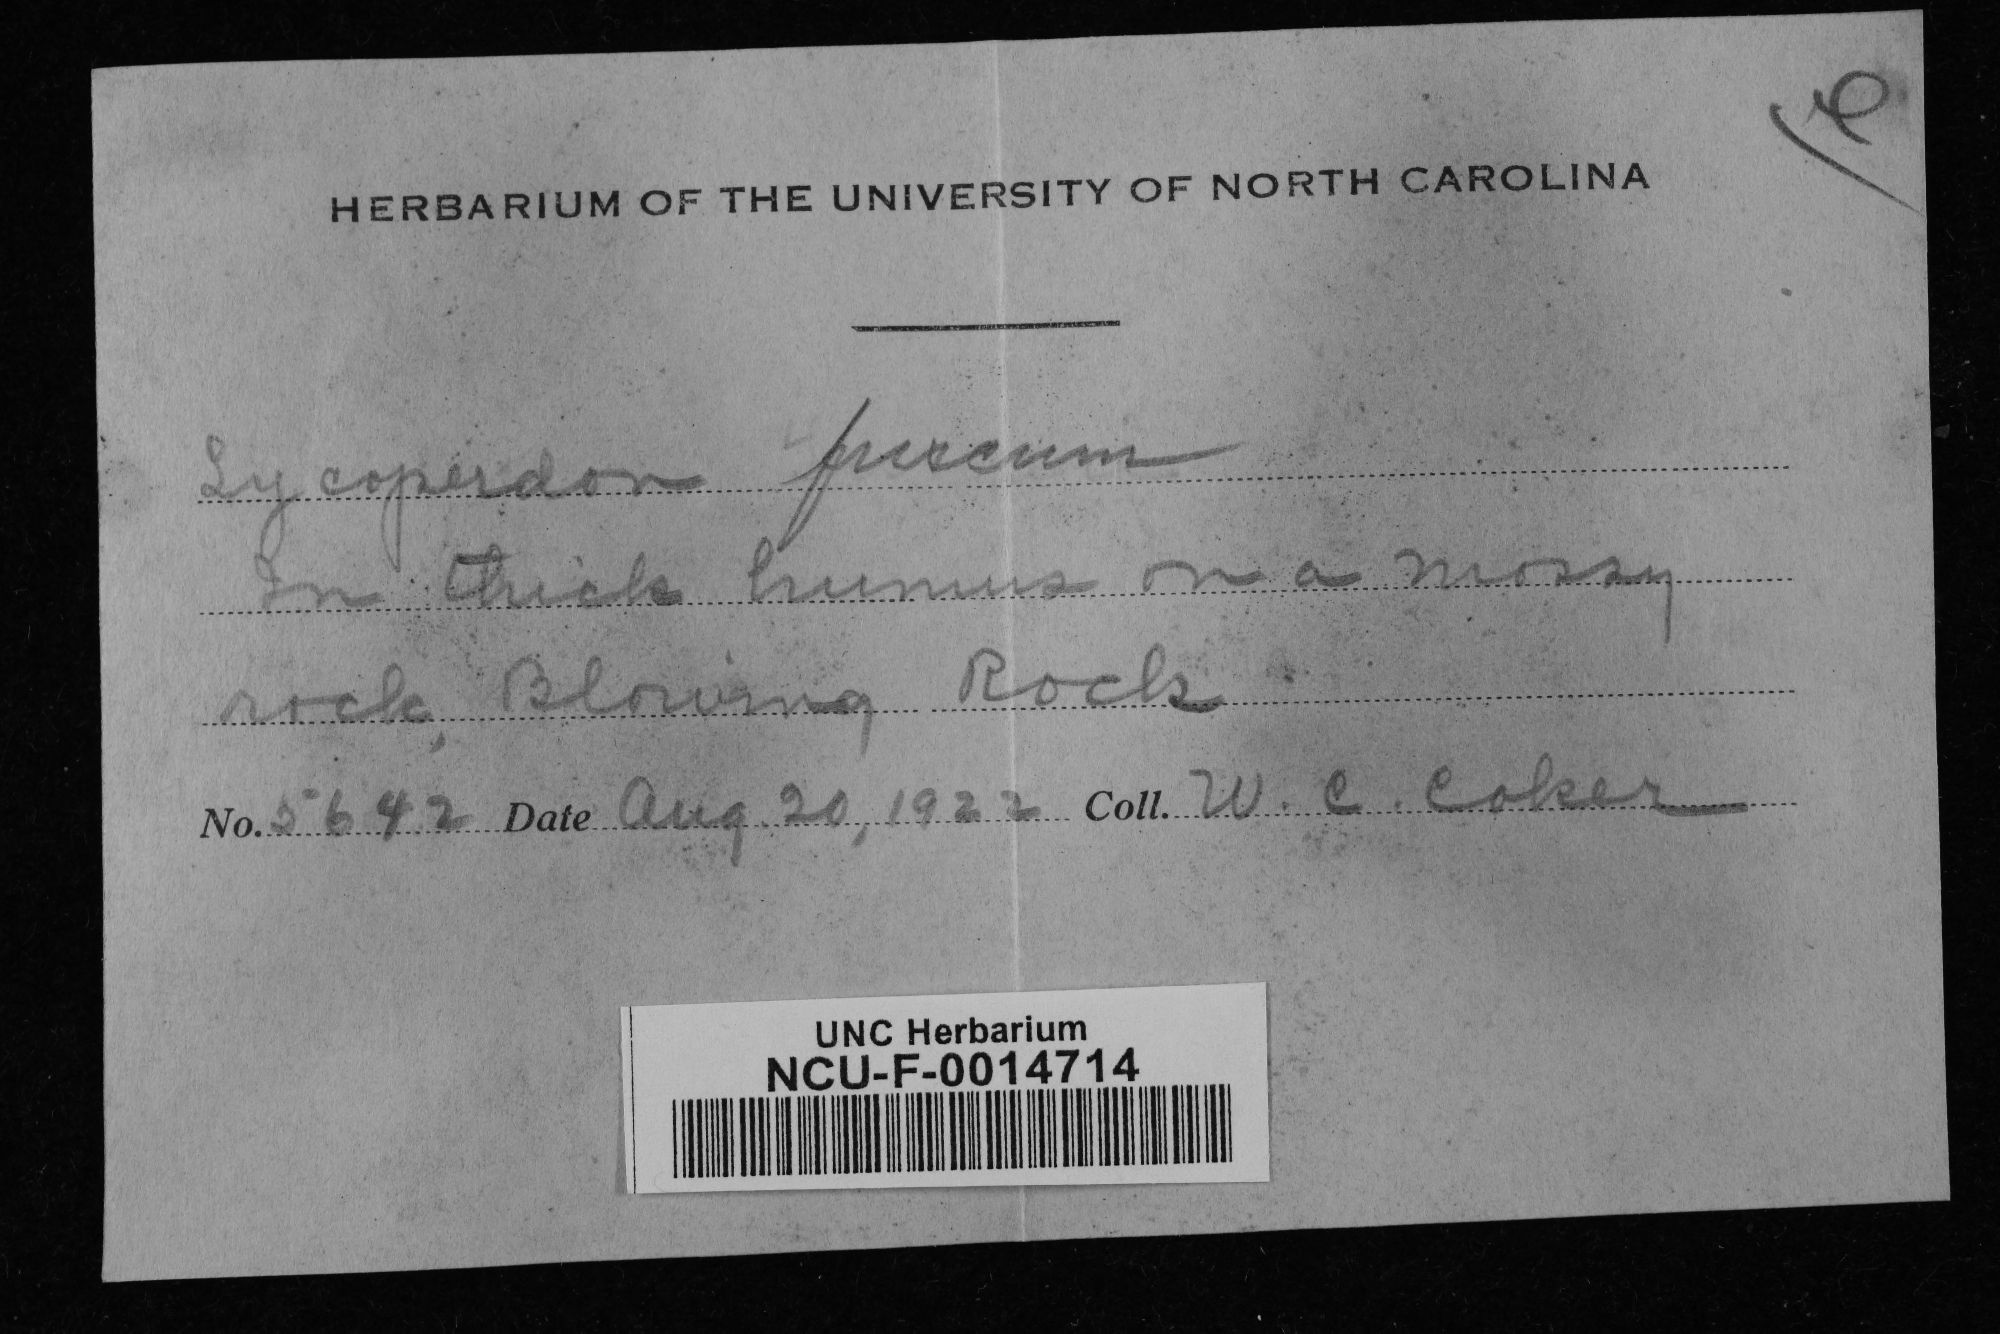 HERBARIUM OF THE UNIVERSITY OF NORTH CAROLINA
Lycoperdon fuscum
In thick humus on a mossy
rock, Blowing Rock
No. 5642 Date Aug. 20, 1922 Coll. W. C. Coker
UNC Herbarium
NCU-F-0014714